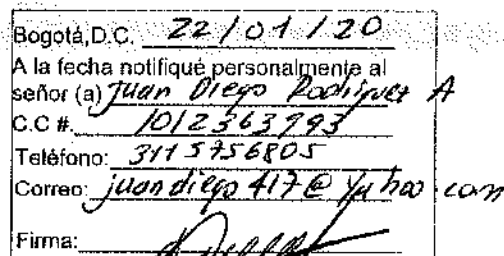 Bogotá,D.C. 22/01/20
A la fecha notifiqué personalmente al
señor (a) Juan Diego Rodríguez A
C.C #. 1012363993
Teléfono: 3115756805
Correo: juandiego417@yahoo.com
Firma: